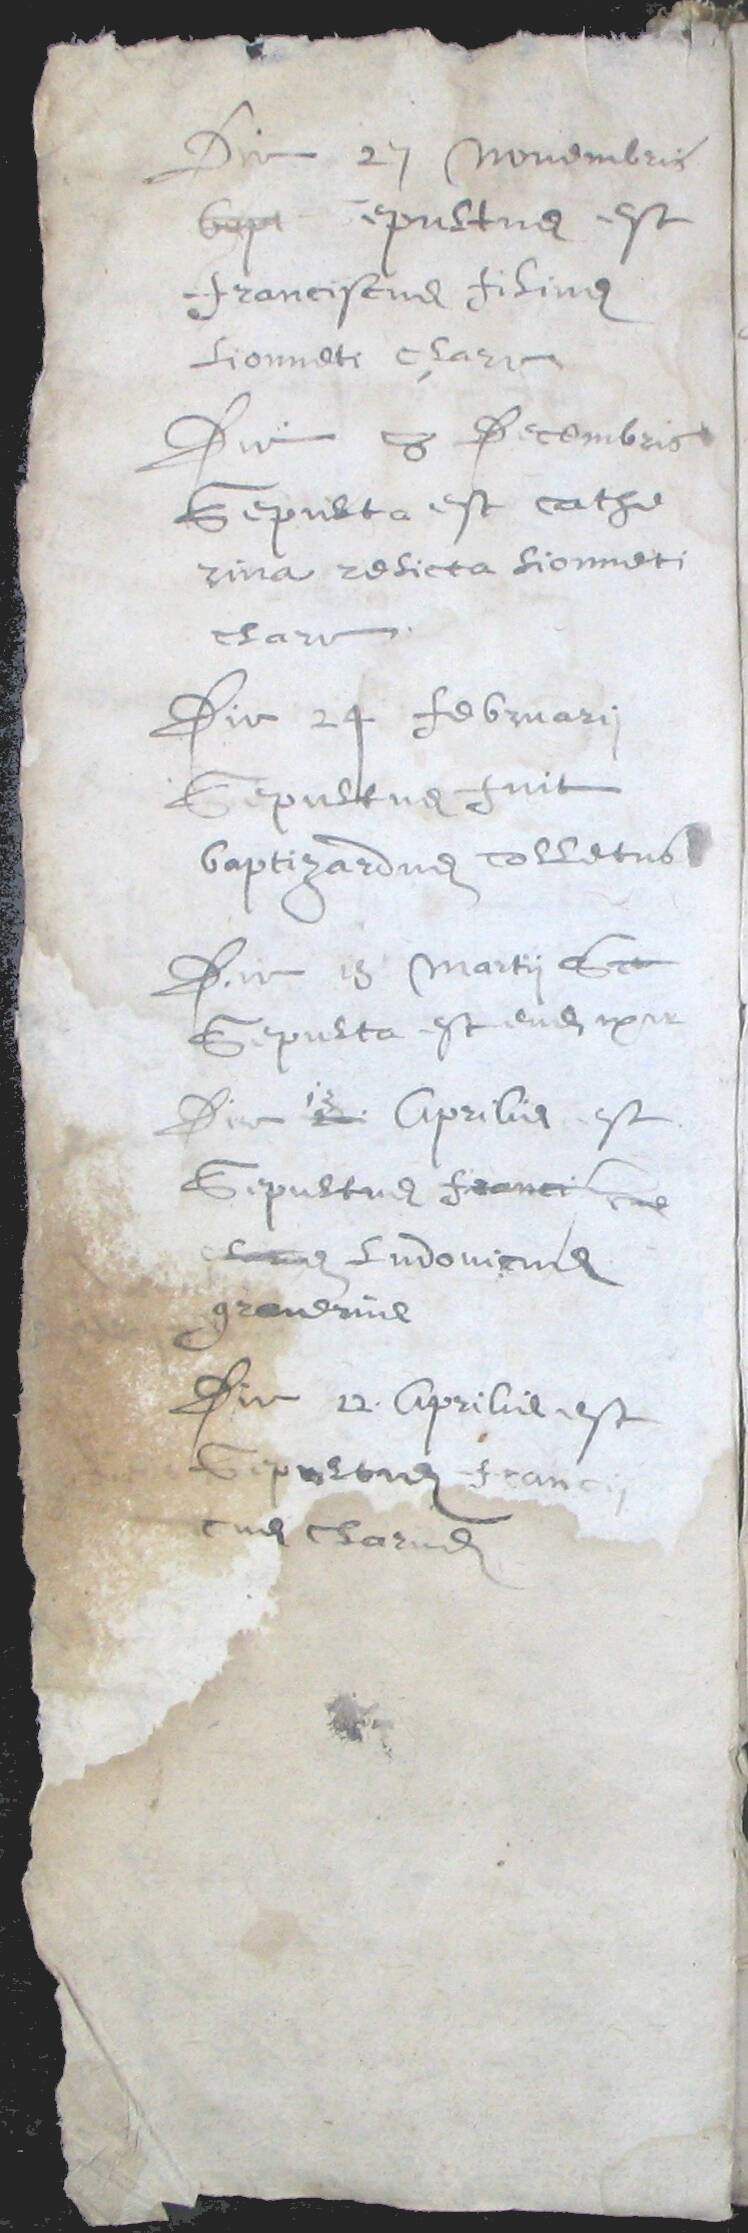 Die 27 Novembris
bapt Sepultus est
franciscus filius
Lionneti Clari
Die 8 Decembris
Sepulta est cathe
rina relicta Lionneti
Clari
Die 24 februarij
Sepultus fuit
baptizardus Colletus
Die 13 Martij
Sepulta est
Die 12 Aprilis est
Sepultus francis cus
clarus Ludovicus
Die 22 Aprilis est
Sepultus francis
cus Clarus